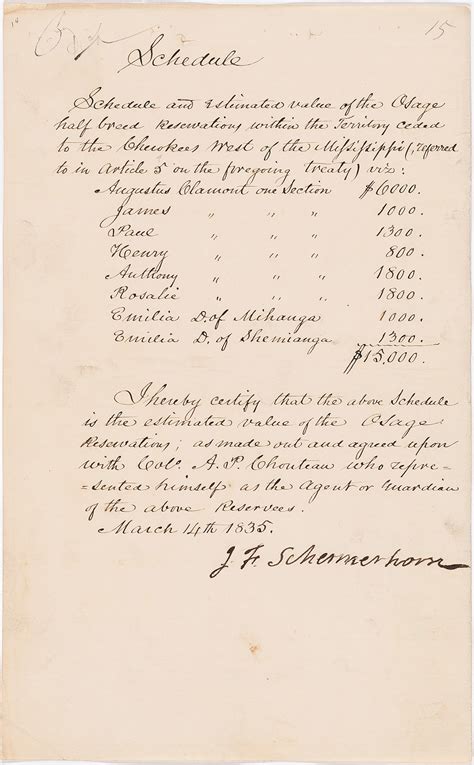 15
Schedule
Schedule and Estimated value of the Osage
half breed Reservations within the Territory ceded
to the Cherokees West of the Mississippi (, referred
to in Article 5 on the foregoing treaty) viz:
Augustus Clamont one Section $6000.
James " " " 1000.
Paul " " " 1300.
Henry " " " 800.
Anthony " " " 1800.
Rosalie " " " 1800.
Emilia D. of Mihanga 1000.
Emilia D. of Shemianga 1300.
$15,000.
I hereby certify that the above Schedule
is the estimated value of the Osage
Reservations; as made out and agreed upon
with Col. A. P. Chouteau who repre-
=sented himself as the Agent or Guardian
of the above Reservees.
March 14th 1835.
J. F. Schermerhorn